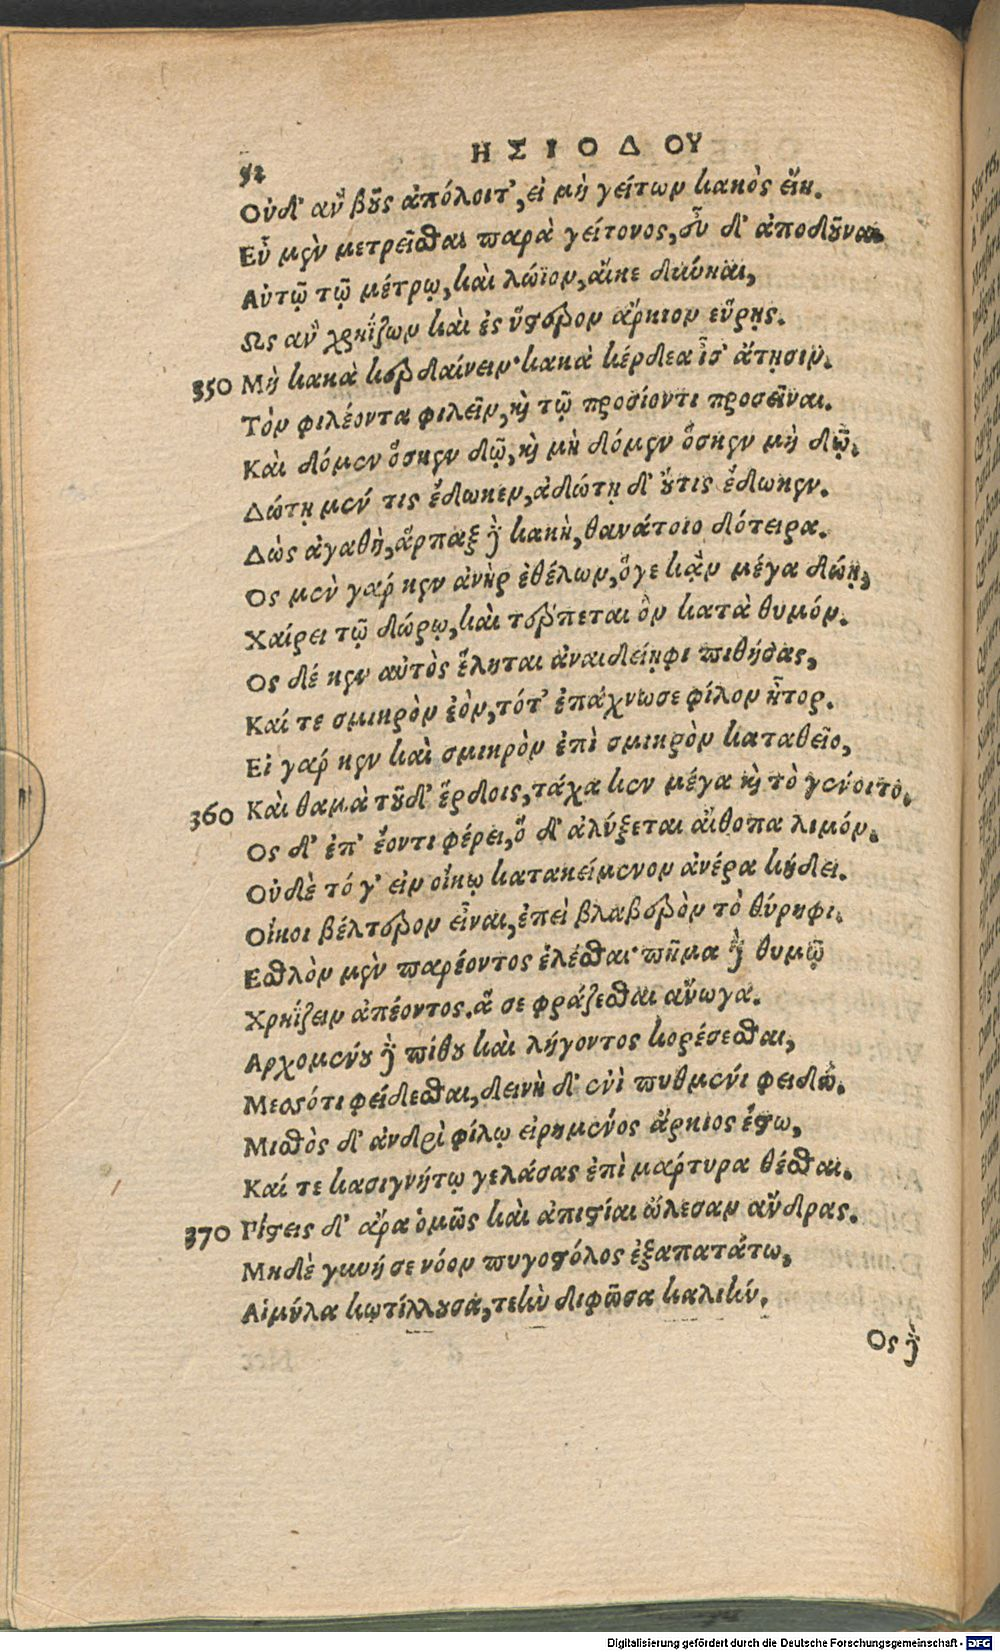 ΗΣΙΟΔΟΥ
52
Οὐδ' ἂν βοῦς ἀπόλοιτ', εἰ μὴ γείτων κακὸς εἴη.
Εὖ μὲν μετρεῖσθαι παρὰ γείτονος, εὖ δ' ἀποδοῦναι
Αὐτῷ τῷ μέτρῳ, καὶ λώϊον, αἴκε δύνηαι,
Ως ἂν χρηΐζων καὶ ἐς ὕστερον ἄρκιον εὕρῃς.
350 Μὴ κακὰ κερδαίνειν· κακὰ κέρδεα ἶσ' ἄτῃσιν.
Τὸν φιλέοντα φιλεῖν, καὶ τῷ προσίοντι προσεῖναι.
Καὶ δόμεν ὅσκεν δῷ, καὶ μὴ δόμεν ὅσκεν μὴ δῷ.
Δώτῃ μέν τις ἔδωκεν, ἀδώτῃ δ' οὔτις ἔδωκεν.
Δὼς ἀγαθὴ, ἅρπαξ δὲ κακὴ, θανάτοιο δότειρα.
Ος μὲν γάρ κεν ἀνὴρ ἐθέλων, ὅγε κἂν μέγα δώῃ,
Χαίρει τῷ δώρῳ, καὶ τέρπεται ὃν κατὰ θυμόν.
Ος δέ κεν αὐτὸς ἕληται ἀναιδείῃφι πιθήσας,
Καί τε σμικρὸν ἐὸν, τότ' ἐπάχνωσε φίλον ἦτορ.
Εἰ γάρ κεν καὶ σμικρὸν ἐπὶ σμικρὸν καταθεῖο,
360 Καὶ θαμὰ τοῦδ' ἕρδοις, τάχα κεν μέγα καὶ τὸ γένοιτο.
Ος δ' ἐπ' ἐόντι φέρει, ὃ δ' ἀλύξεται αἴθοπα λιμόν.
Οὐδὲ τό γ' εἰν οἴκῳ κατακείμενον ἀνέρα κήδει.
Οἴκοι βέλτερον εἶναι, ἐπεὶ βλαβερὸν τὸ θύρηφι.
Εσθλὸν μὲν παρέοντος ἑλέσθαι· πῆμα δὲ θυμῷ
Χρηΐζειν ἀπέοντος. ἅ σε φράζεσθαι ἄνωγα.
Αρχομένου δὲ πίθου καὶ λήγοντος κορέσεσθαι,
Μεσσότι φείδεσθαι, δεινὴ δ' ἐνὶ πυθμένι φειδώ.
Μισθὸς δ' ἀνδρὶ φίλῳ εἰρημένος ἄρκιος ἔστω,
Καί τε κασιγνήτῳ γελάσας ἐπὶ μάρτυρα θέσθαι.
370 Πίστεις δ' ἄρα ὁμῶς καὶ ἀπιστίαι ὤλεσαν ἄνδρας.
Μηδὲ γυνή σε νόον πυγοστόλος ἐξαπατάτω,
Αἱμύλα κωτίλλουσα, τεὴν διφῶσα καλιήν.
Ος δὲ